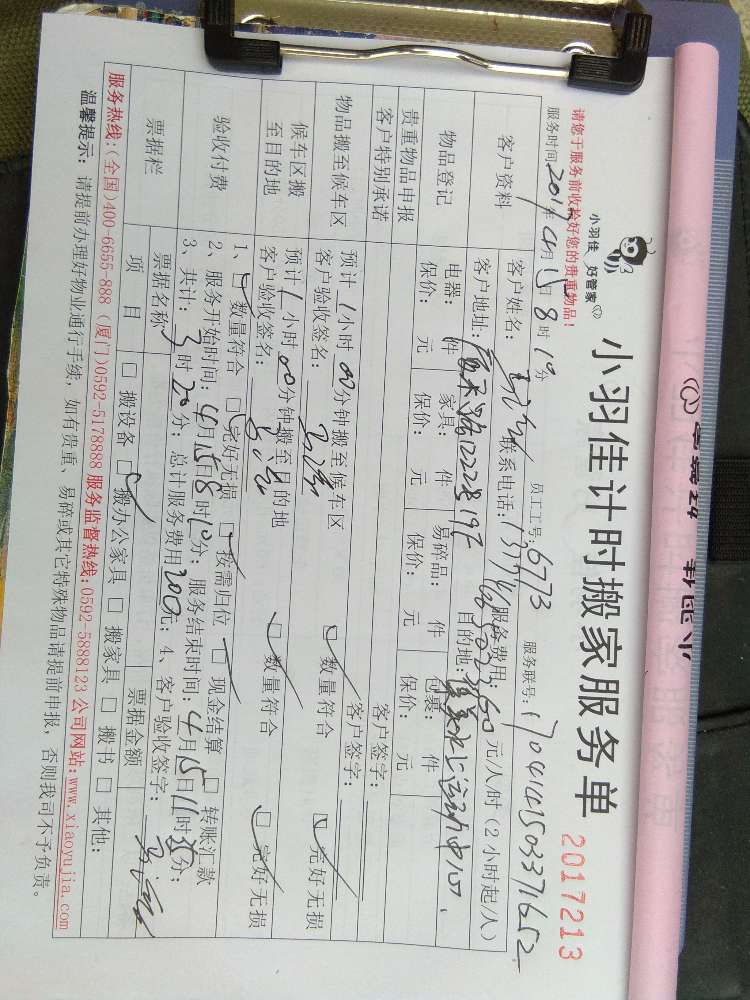 小羽佳 好管家
小羽佳计时搬家服务单
2017213
请您于服务前收拾好您的贵重物品!
服务时间2017年4月15日8时10分 员工工号:6773 服务联号:
客户资料
客户姓名: 联系电话: 服务费用:60元/人/时(2小时起/人)
客户地址: 目的地:
物品登记
电器: 件 家具: 件 易碎品: 件 包裹: 件
保价: 元 保价: 元 保价: 元 保价: 元
贵重物品申报 客户签字:
客户特别承诺 客户签字:
物品搬至候车区
预计1小时00分钟搬至候车区
客户验收签名: □ 数量符合 □ 完好无损
候车区搬
至目的地
预计1小时00分钟搬至目的地
客户验收签名: □ 数量符合 □ 完好无损
验收付费
1、□ 数量符合 □ 完好无损 □ 按需归位 □ 现金结算 □ 转账汇款
2、服务开始时间:4月15日8时10分;服务结束时间:4月15日11时分;
3、共计:3时20分;总计服务费用200元;4、客户验收签字:
票据栏
票据名称 票据金额
项 目 □ 搬设备 □ 搬办公家具 □ 搬家具 □ 搬书 □ 其他:
服务热线:(全国)400-6655-888 (厦门)0592-5178888 服务监督热线:0592-5888123 公司网站:www.xiaoyujia.com
温馨提示: 请提前办理好物业通行手续,如有贵重、易碎或其它特殊物品请提前申报,否则我司不予负责。